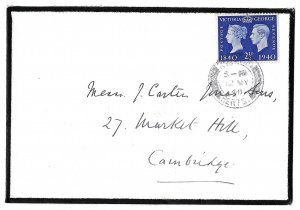 VICTORIA GEORGE
POSTAGE REVENUE
1840 2½D 1940
12 MY
Messrs J. Carter Jonas & Sons,
27. Market Hill,
Cambridge.